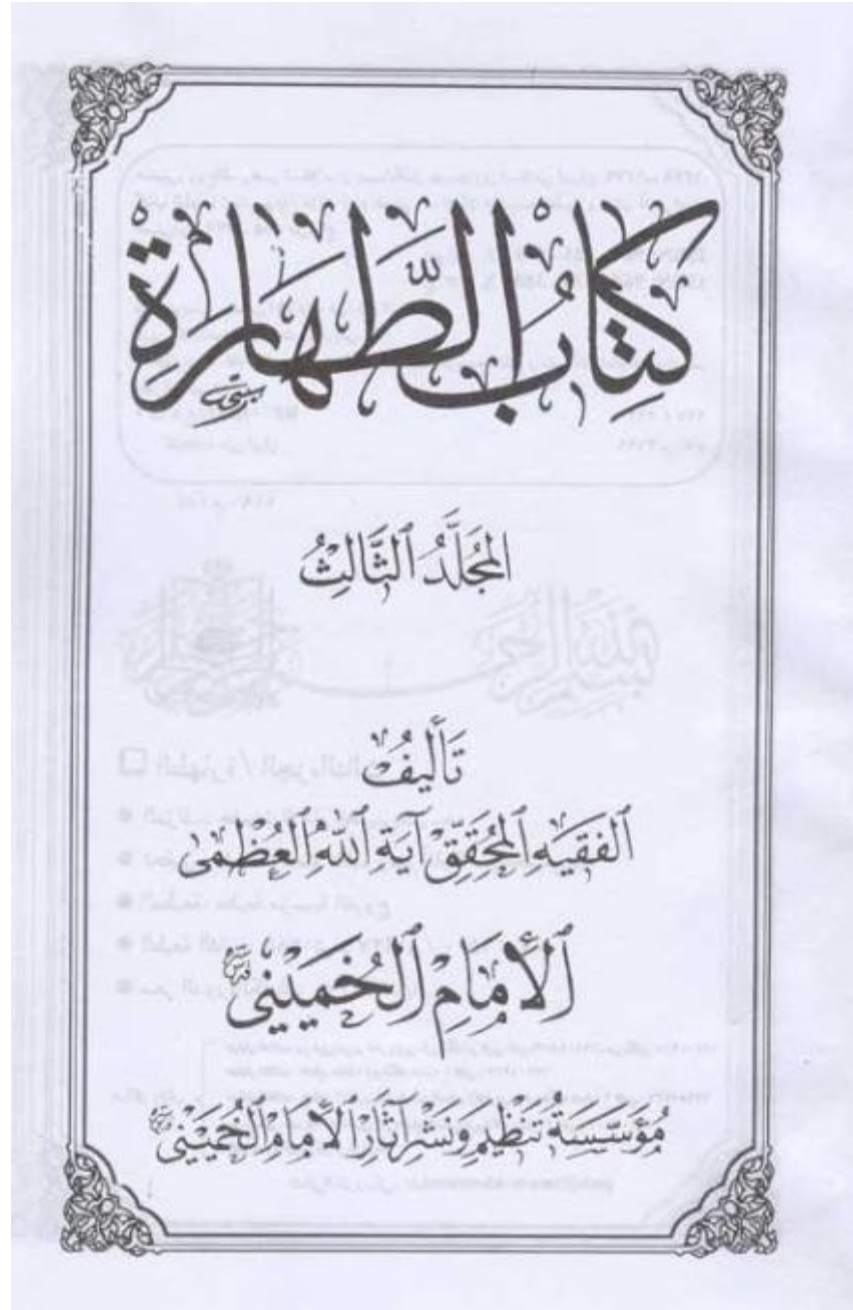 كِتَابُ الطَّهَارَةِ
المُجَلَّدُ الثَّالِثُ
تَأْلِيفُ
الفَقِيهِ المُحَقِّقِ آيَةِ اللهِ العُظْمَى
الأِمَامِ الخُمَيْنِي
مُؤَسَّسَةُ تَنْظِيمِ وَنَشْرِ آثَارِ الأِمَامِ الخُمَيْنِي